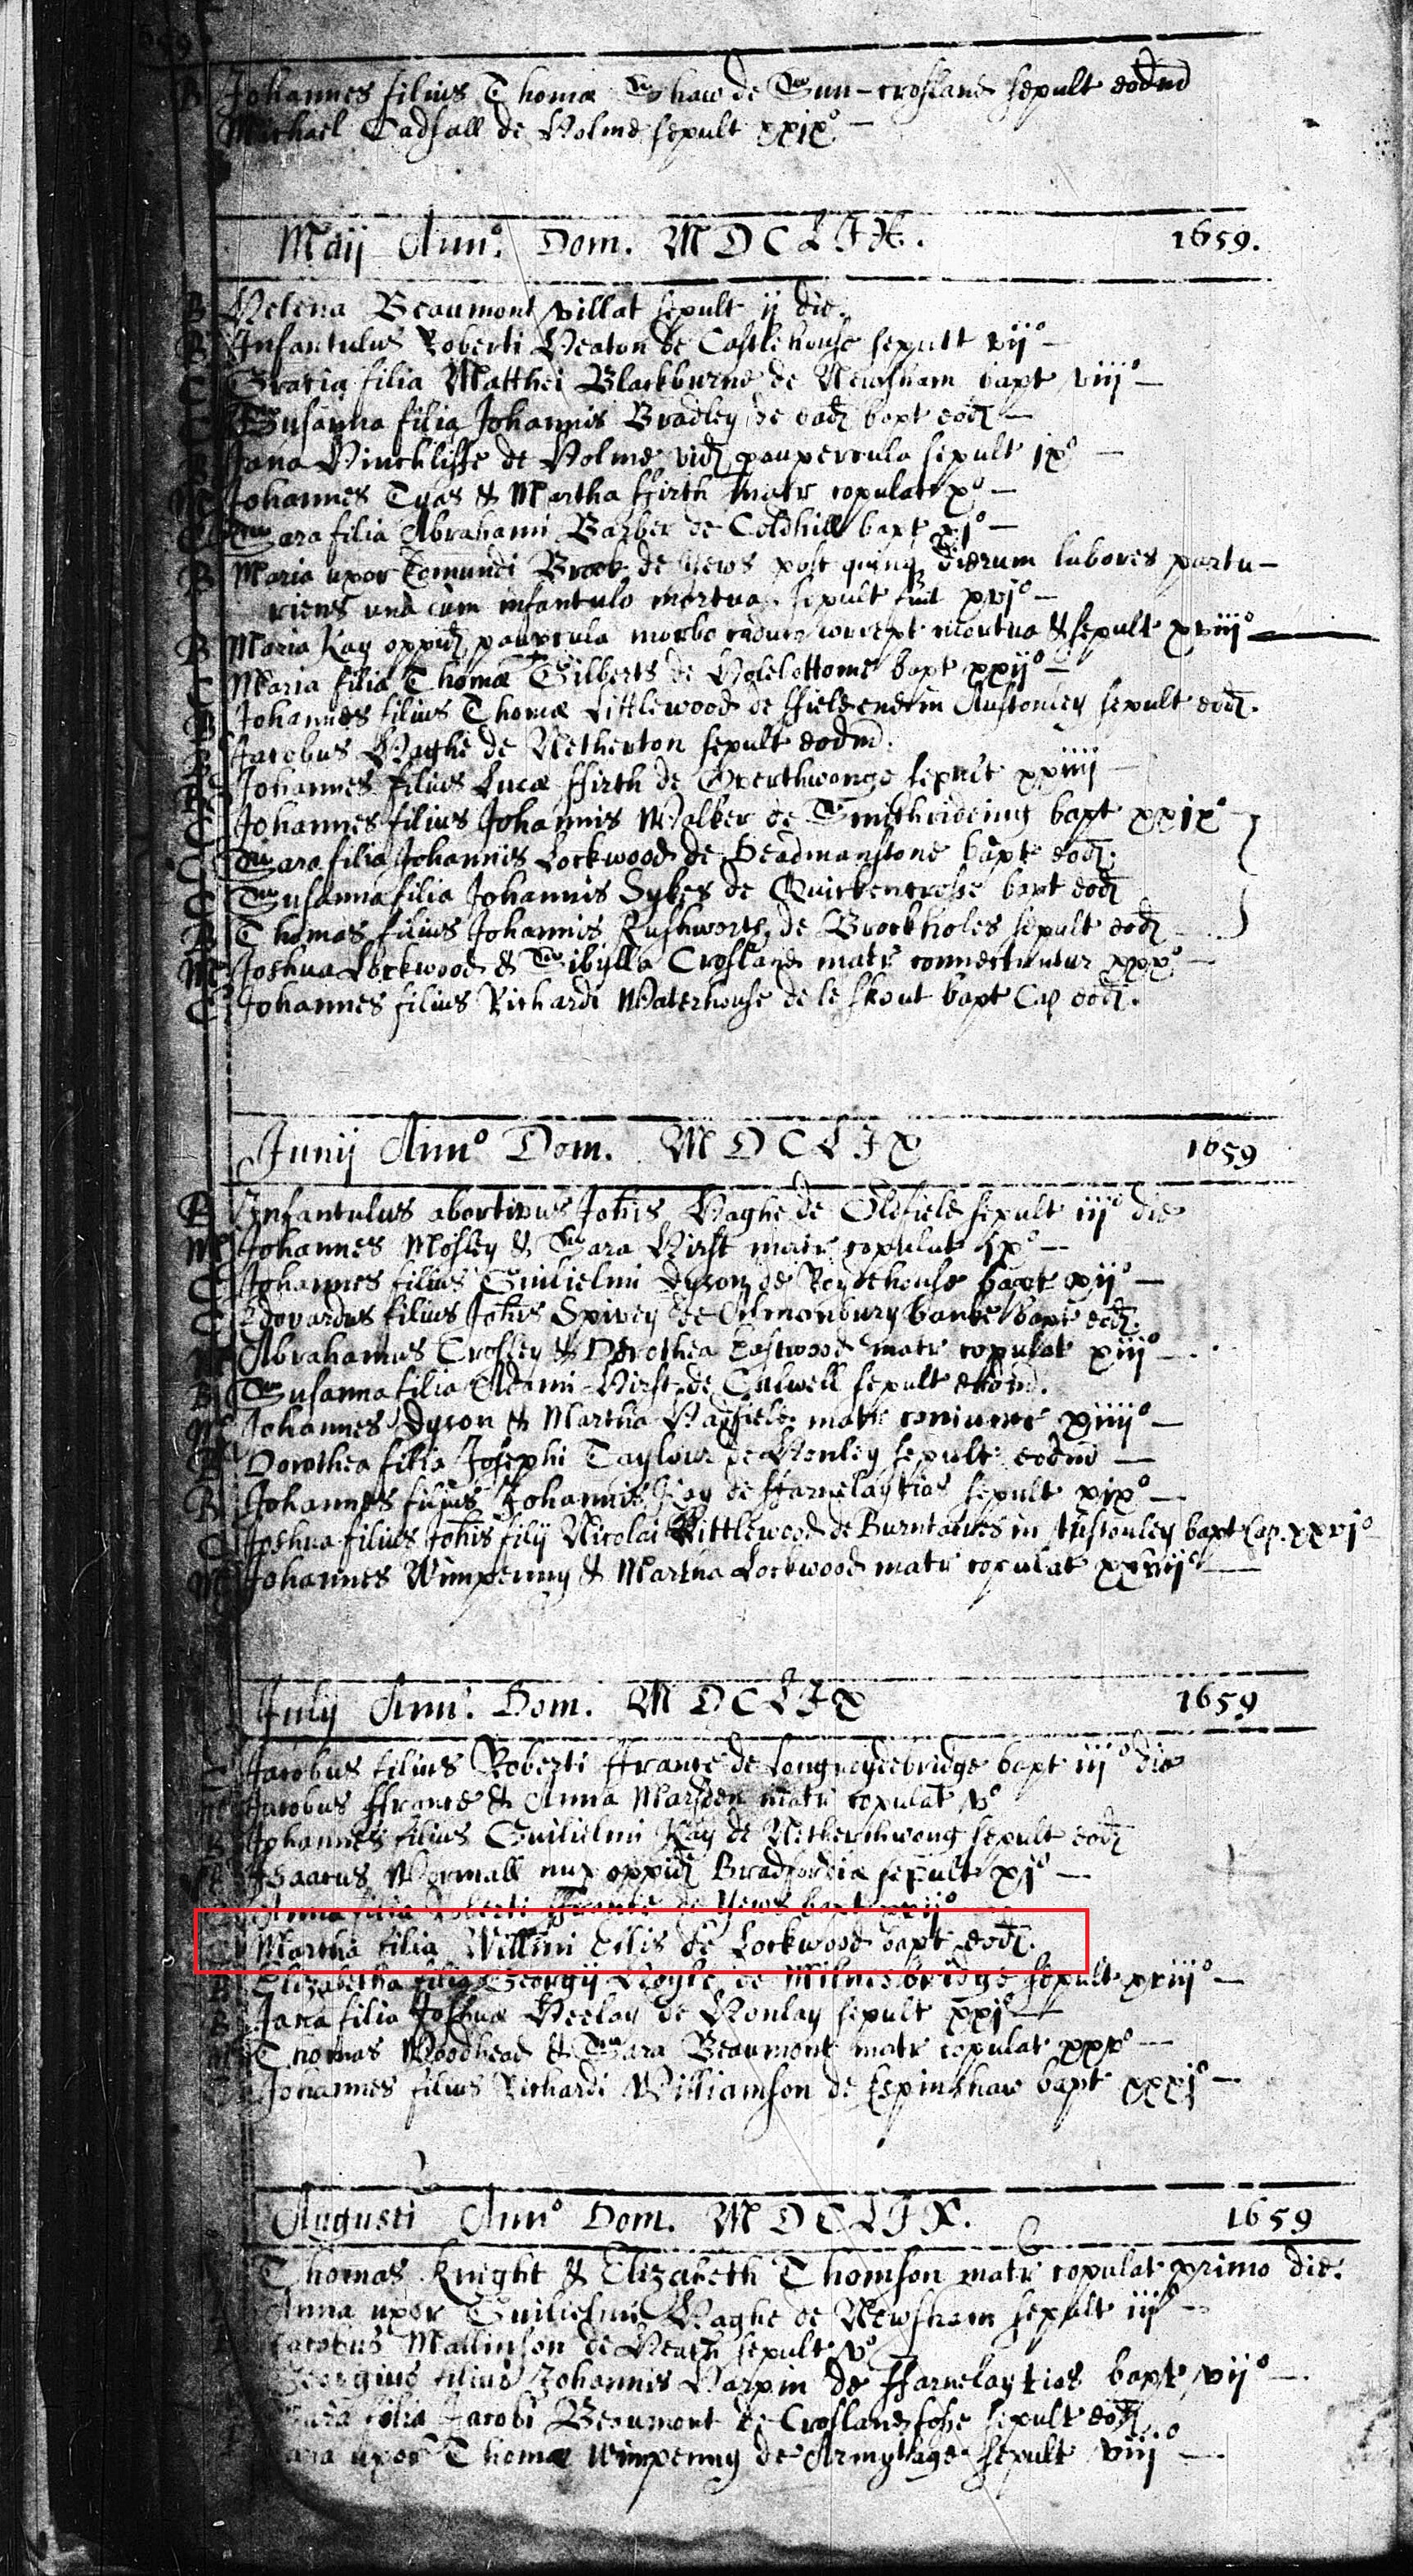 B Johannes filius Thomæ Shaw de Sun-crosland sepult eodm
Michael Cadfall de Holme sepult xxixº
Maij Annº. Dom. MDCLIX. 1659.
B Helena Beaumont villat sepult ij die.
B Infantulus Roberti Heaton de Castlehouse sepult vijº
C Gratia filia Matthei Blackburne de Newsham bapt viijº
C Susanna filia Johannis Bradley de ead bapt eod
B Jana Hinchliffe de Holme vid paupercula sepult ixº
M Johannes Tyas & Martha ffirth matr copulat xº
C Sara filia Abrahami Barber de Coldhill bapt
B Maria uxor Edmundi Brook de Hews post quinq dierum labores partu-
riens una cum infantulo mortua sepult fuit xvjº
B Maria Kay oppid paupcula morbo caduco corrept mortua & sepult xviijº
C Maria filia Thomæ Gilberts de Holebottome bapt xxijº
B Johannes filius Thomæ Littlewood de ffield end in Austonley sepult eod.
B Jacobus Haghe de Netherton sepult eodm.
B Johannes filius Lucæ ffirth de Overthwonge sepult xxiiij
C Johannes filius Johannis Walker de Smithrideing bapt xxixº
C Sara filia Johannis Lockwood de Deadmanstone bapt eod.
C Susanna filia Johannis Sykes de Quickencrosse bapt eod
B Thomas filius Johannis Rushworth de Brockholes sepult eod
M Joshua Lockwood & Sibylla Crosland matr connectuntur xxxº
C Johannes filius Richardi Waterhouse de le skout bapt Cap eod.
Junij Annº Dom. MDCLIX 1659
B Infantulus abortivus Johis Haghe de Oldfield sepult iijº die
M Johannes Mosley & Sara Hirst matr copulat ixº
C Johannes filius Guilielmi Dyson de Roydehouse bapt xijº
C Edovardus filius Johis Spivey de Almonbury banke bapt eod.
M Abrahamus Crosley & Dorothea Eastwood matr copulat xiijº
B Susanna filia Adami Hirst de Culwell sepult eodm.
M Johannes Dyson & Martha Hadfield matr coniunct xiiijº
B Dorothea filia Josephi Taylour de Honley sepult eodm
B Johannes filius Johannis Kay de ffarneleytias sepult xixº
C Joshua filius Johis filij Nicolai Littlewood de Burntanes in Austonley bapt Cap. xxvjº
M Johannes Wimpenny & Martha Lockwood matr copulat xxviijº
Julij Annº. Dom. MDCLIX 1659
C Jacobus filius Roberti ffrance de Longroydebridge bapt iijº die
Jacobus ffrance & Anna Marsden matr copulat vº
B Johannes filius Guilielmi Kay de Netherthwong sepult eod
Isaacus Wormall nup oppid Bradfordiæ sepult xjº
Anna filia Roberti ffrance de Hews bapt xvijº
Martha filia Willmi Ellis de Lockwood bapt eod.
B Elizabetha filia Georgij Hoyle de Milnesbridge sepult xviijº
B Jana filia Joshuæ Heeley de Honley sepult xxjº
M Thomas Woodhead & Sara Beaumont matr copulat xxxº
Johannes filius Richardi Williamson de Espinshaw bapt xxxjº
Augusti Annº Dom. MDCLIX. 1659
Thomas Knight & Elizabeth Thomson matr copulat primo die.
Anna uxor Guilielmi Haghe de Newsham sepult iijº
Jacobus Mallinson de Heath sepult vº
Georgius filius Johannis Harpin de ffarneleytias bapt vijº
filia Jacobi Beaumont de Croslandfosse sepult eod
Sara uxor Thomæ Wimpenny de Armytage sepult viijº